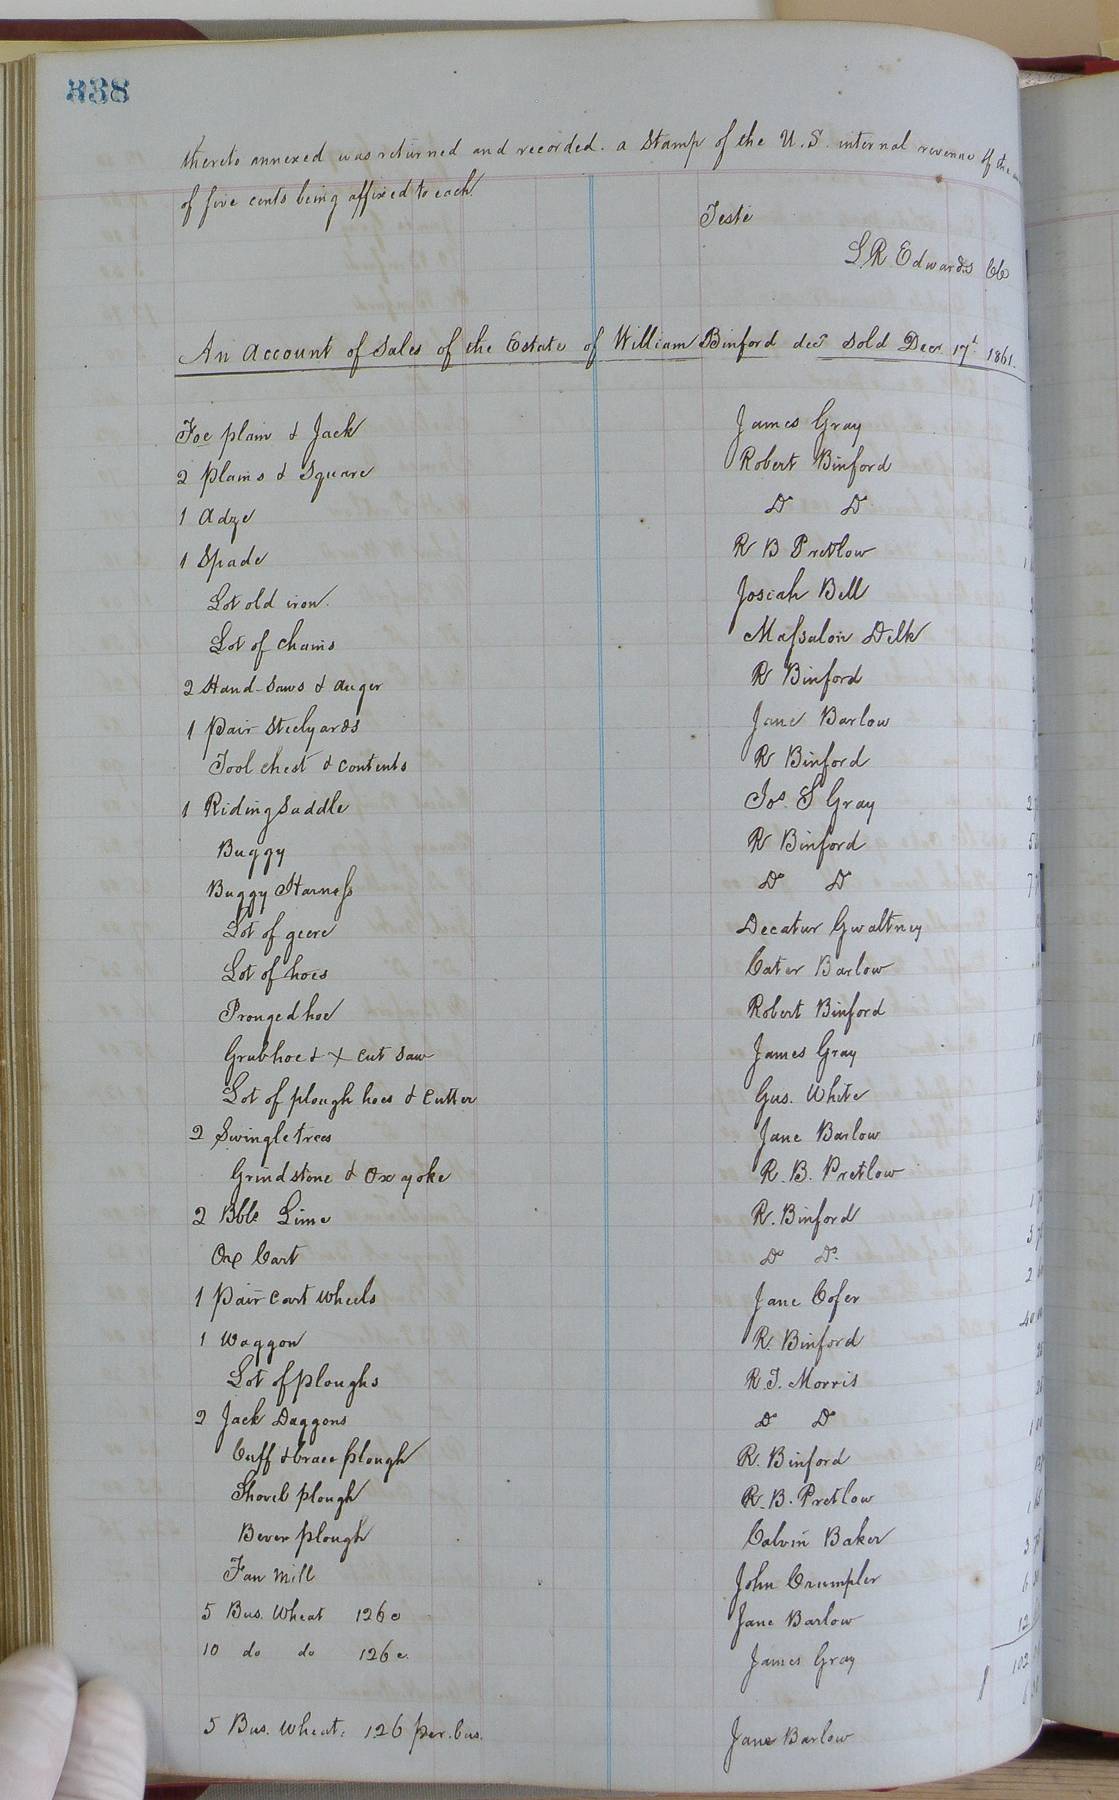 338
thereto annexed was returned and recorded. a Stamp of the U.S. internal revenue of the
of five cents being affixed to each.
Teste
S. R. Edwards CC
An account of Sales of the Estate of William Binford decd sold Decr. 17th 1861.
Foe plain & Jack James Gray
2 Plains & Square Robert Binford
1 Adze Do Do
1 Spade R B Pretlow
Lot old iron. Josiah Bell
Lot of chains Massalon Delk
2 Hand-saws & auger R Binford
1 Pair Steelyards Jane Barlow
Tool chest & contents R Binford
1 Riding Saddle Jos. S Gray 2
Buggy R Binford 5
Buggy Harness Do Do 7
Lot of geere Decatur Gwaltney
Lot of hoes Cater Barlow
Pronged hoe Robert Binford
Grubhoe & X cut saw James Gray
Lot of plough hoes & Cutter Gus. White
2 Swingletrees Jane Barlow
Grindstone & Ox yoke R. B. Pretlow
2 Bble Lime R. Binford
Ox Cart Do Do.
1 Pair cart wheels Jane Cofer
1 Waggon R. Binford
Lot of ploughs R. T. Morris
2 Jack Daggons Do Do
Cuff & brace plough R. Binford
Shovel plough R. B. Pretlow
Bever plough Calvin Baker
Fan Mill John Crumpler
5 Bus. Wheat 126c Jane Barlow 12
10 do do 126c. James Gray
102
5 Bus. Wheat: 126 per. bus. Jane Barlow